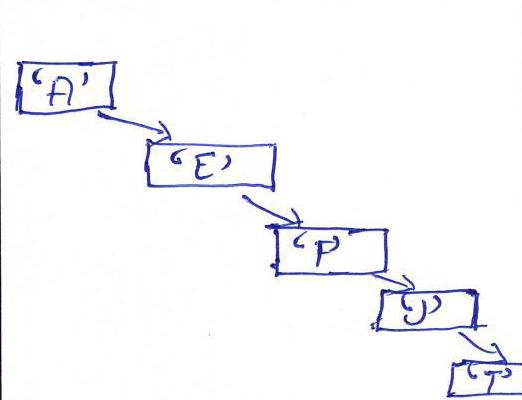 'A'
'E'
'F'
'J'
'T'